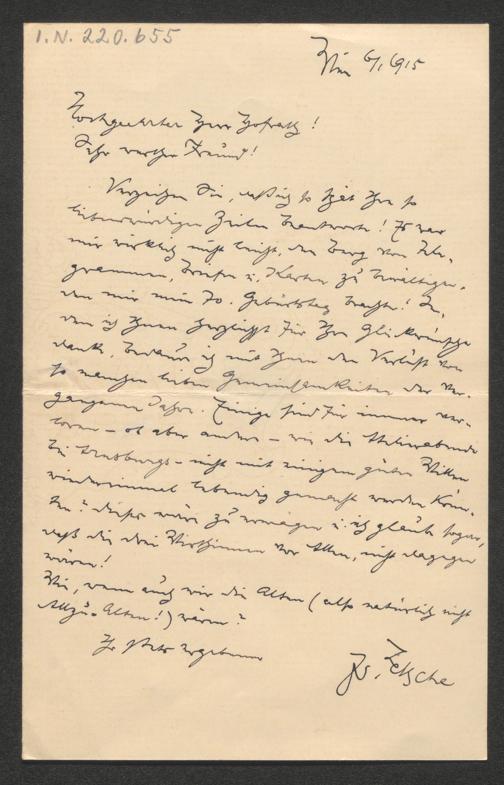 I.N. 220.655
Wien 6/1 1915
Hochgeehrter Herr Hofrath!
Sehr werther Freund!
Verzeihen Sie, daß ich so spät Ihre so
liebenswürdigen Zeilen beantworte! Es war
mir wirklich nicht leicht, den Berg von Tele-
grammen, Briefen u. Karten zu bewältigen,
den mir mein 70. Geburtstag brachte! In-
dem ich Ihnen herzlichst für Ihre Glückwünsche
danke, bedaure ich mit Ihnen den Verlust von
so manchen lieben Gemeinsamkeiten der ver-
gangenen Jahre. Einige sind für immer ver-
loren – ob aber andere – wie die
bei – nicht mit einigem guten Willen
wieder einmal lebendig gemacht werden könn-
ten? Dieses wäre zu erwägen u. ich glaube sogar,
daß die drei Wirthinnen vor Allem, nicht dagegen
wären!
Wie, wenn auch wir die Alten (also natürlich nicht
Allzu-Alten!) wären?
Ihr stets ergebener
Zetsche